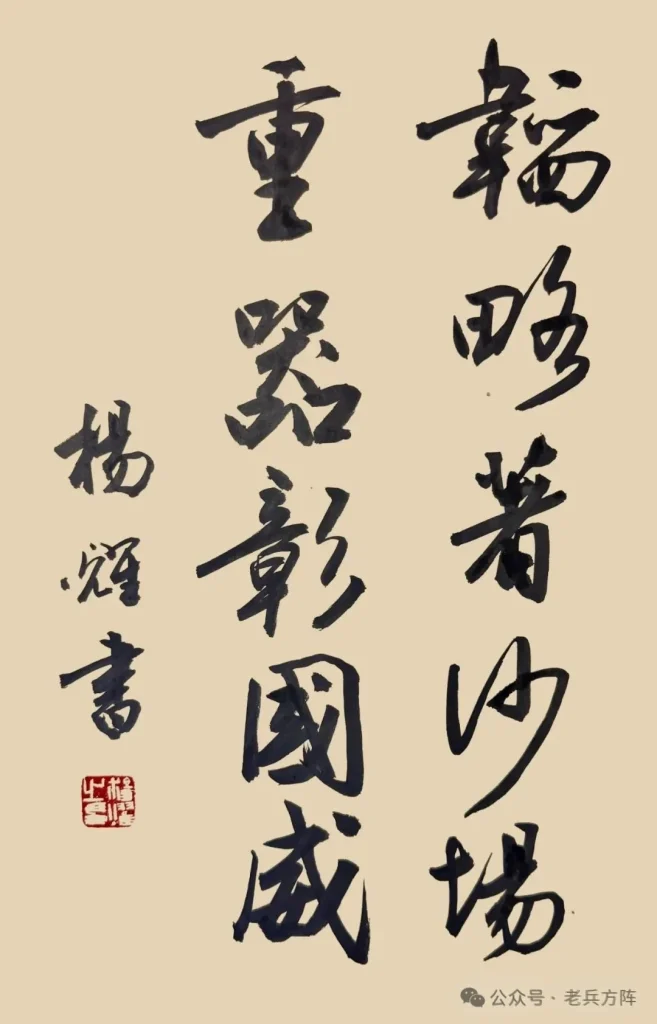 韜略著沙場
重器彰國威
楊耀書
公众号·老兵方阵